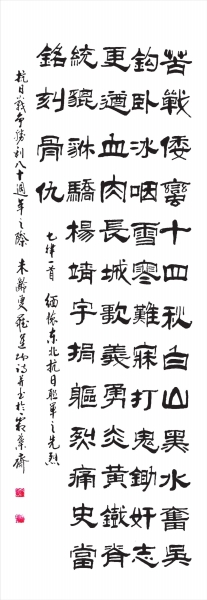 苦戰倭蠻十四秋白山黑水奮吳
鈎臥冰咽雪寒難寐打鬼鋤奸志
更遒血肉長城歌義勇炎黃鐵脊
統貔貅驕楊靖宇捐軀烈痛史當
銘刻骨仇
七律一首 緬懷東北抗日聯軍之先烈
抗日戰爭勝利八十週年之際 詩并書於 齋